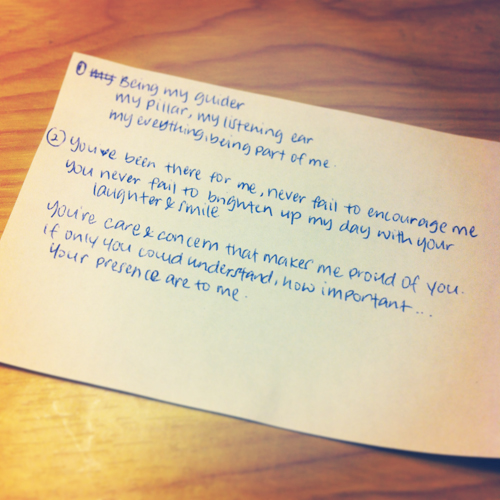 ① my Being my guider
my pillar, my listening ear
my eveything, being part of me.
② You've been there for me, never fail to encourage me
you never fail to brighten up my day with your
laughter & smile
You're care & concern that makes me proud of you.
if only you could understand, how important...
your presence are to me.